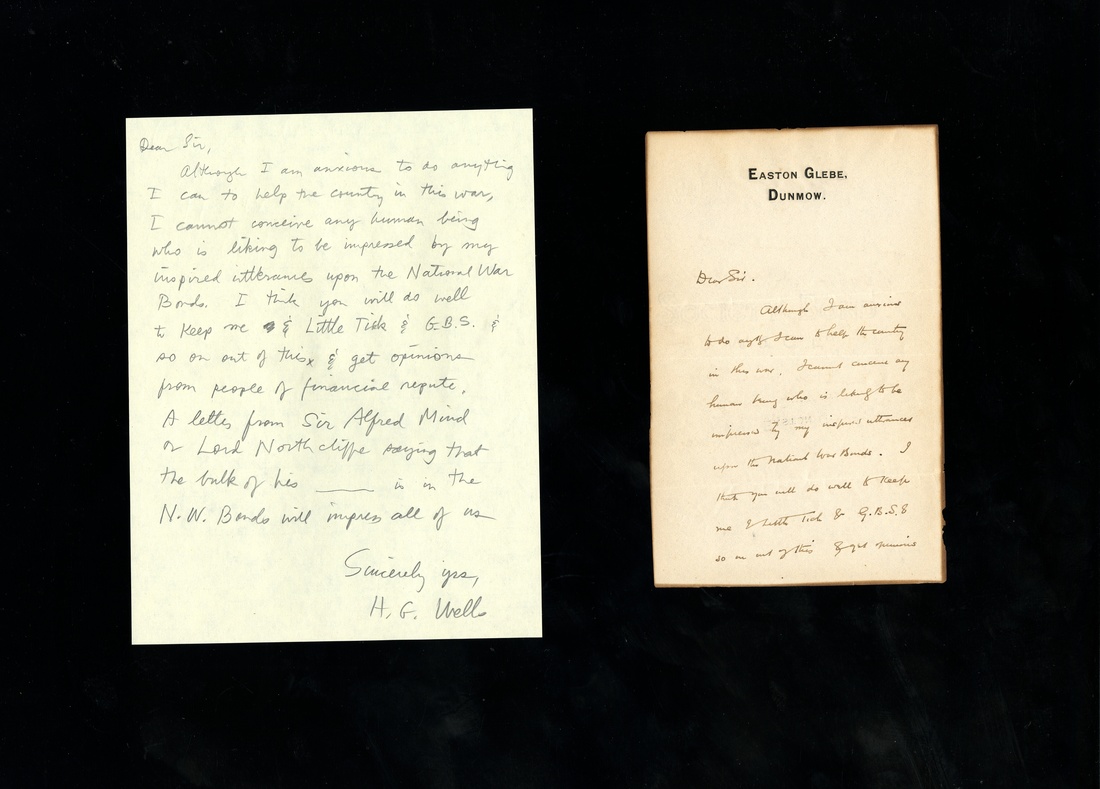 Dear Sir,
Although I am anxious to do anything
I can to help the country in this war,
I cannot conceive any human being
who is liking to be impressed by my
inspired utterances upon the National War
Bonds. I think you will do well
to keep me & Little Tick & G.B.S. &
so on out of this, & get opinions
from people of financial repute.
A letter from Sir Alfred Mind
or Lord Northcliffe saying that
the bulk of his ______ is in the
N.W. Bonds will impress all of us
Sincerely yrs,
H. G. Wells
EASTON GLEBE,
DUNMOW.
Dear Sir.
Although I am anxious
to do anythg I can to help the country
in this war, I cannot conceive any
human being who is likely to be
impressed by my inspired utterances
upon the National War Bonds. I
think you will do well to keep
me & Little Tich & G.B.S. &
so on out of this & get opinions